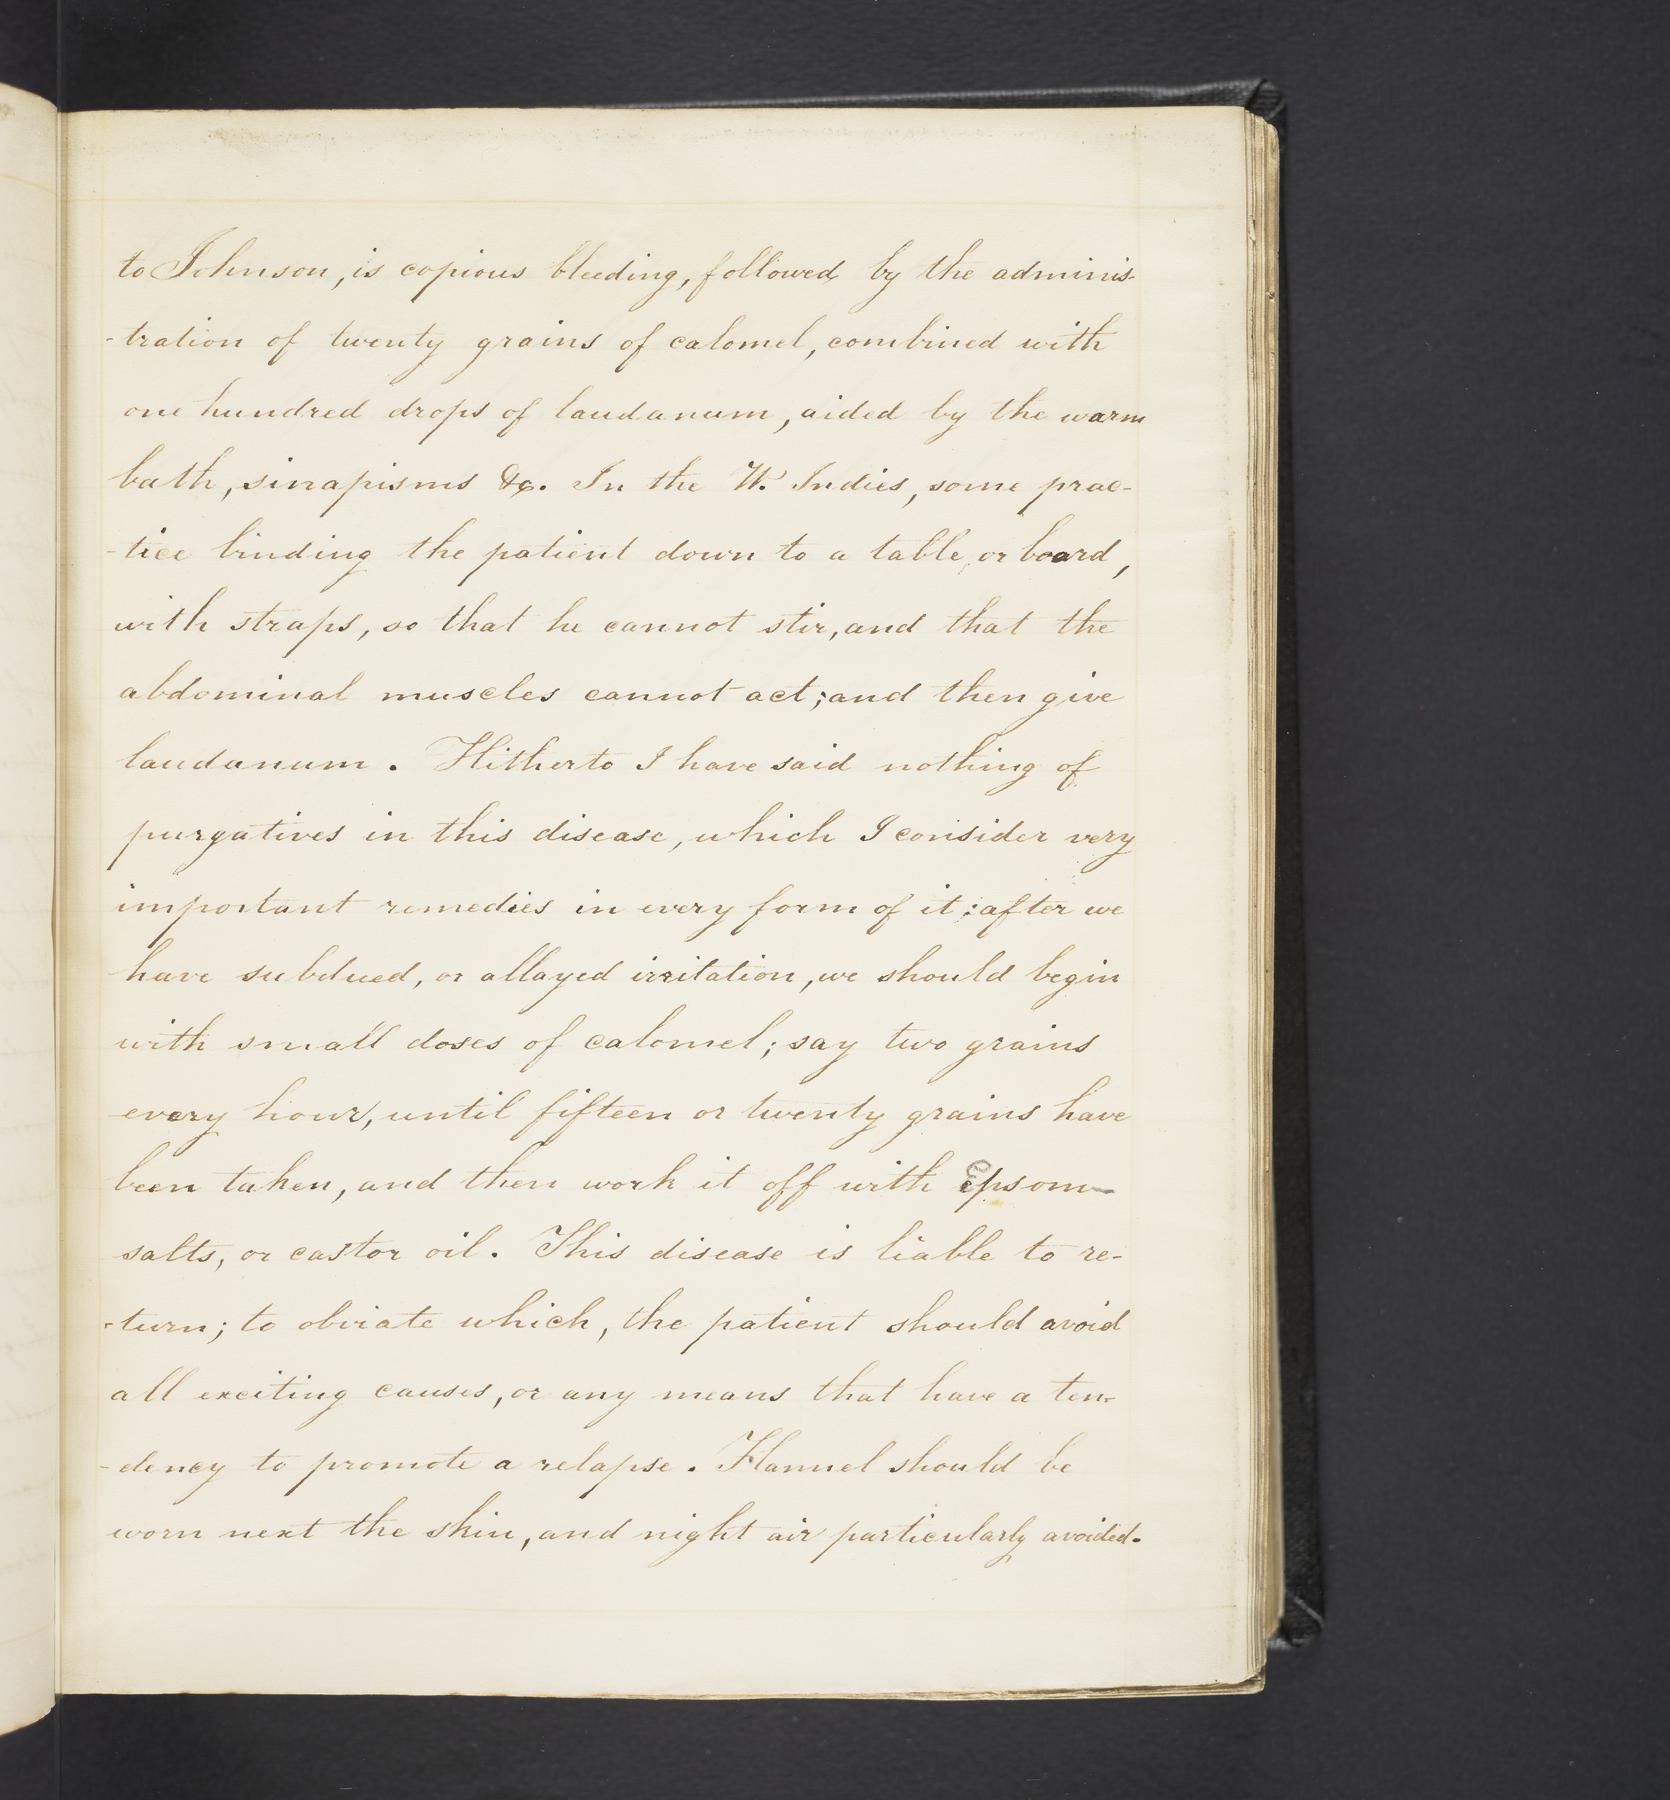 to Johnson, is copious bleeding, followed by the adminis-
-tration of twenty grains of calomel, combined with
one hundred drops of laudanum, aided by the warm
bath, sinapisms &c. In the W. Indies, some prac-
-tice binding the patient down to a table, or board,
with straps, so that he cannot stir, and that the
abdominal muscles cannot act; and then give
laudanum. Hitherto I have said nothing of
purgatives in this disease, which I consider very
important remedies in every form of it: after we
have subdued, or allayed irritation, we should begin
with small doses of calomel; say two grains
every hour, until fifteen or twenty grains have
been taken, and then work it off with Epsom
salts, or castor oil. This disease is liable to re-
-turn; to obviate which, the patient should avoid
all exciting causes, or any means that have a ten-
-dency to promote a relapse. Flannel should be
worn next the skin, and night air particularly avoided.